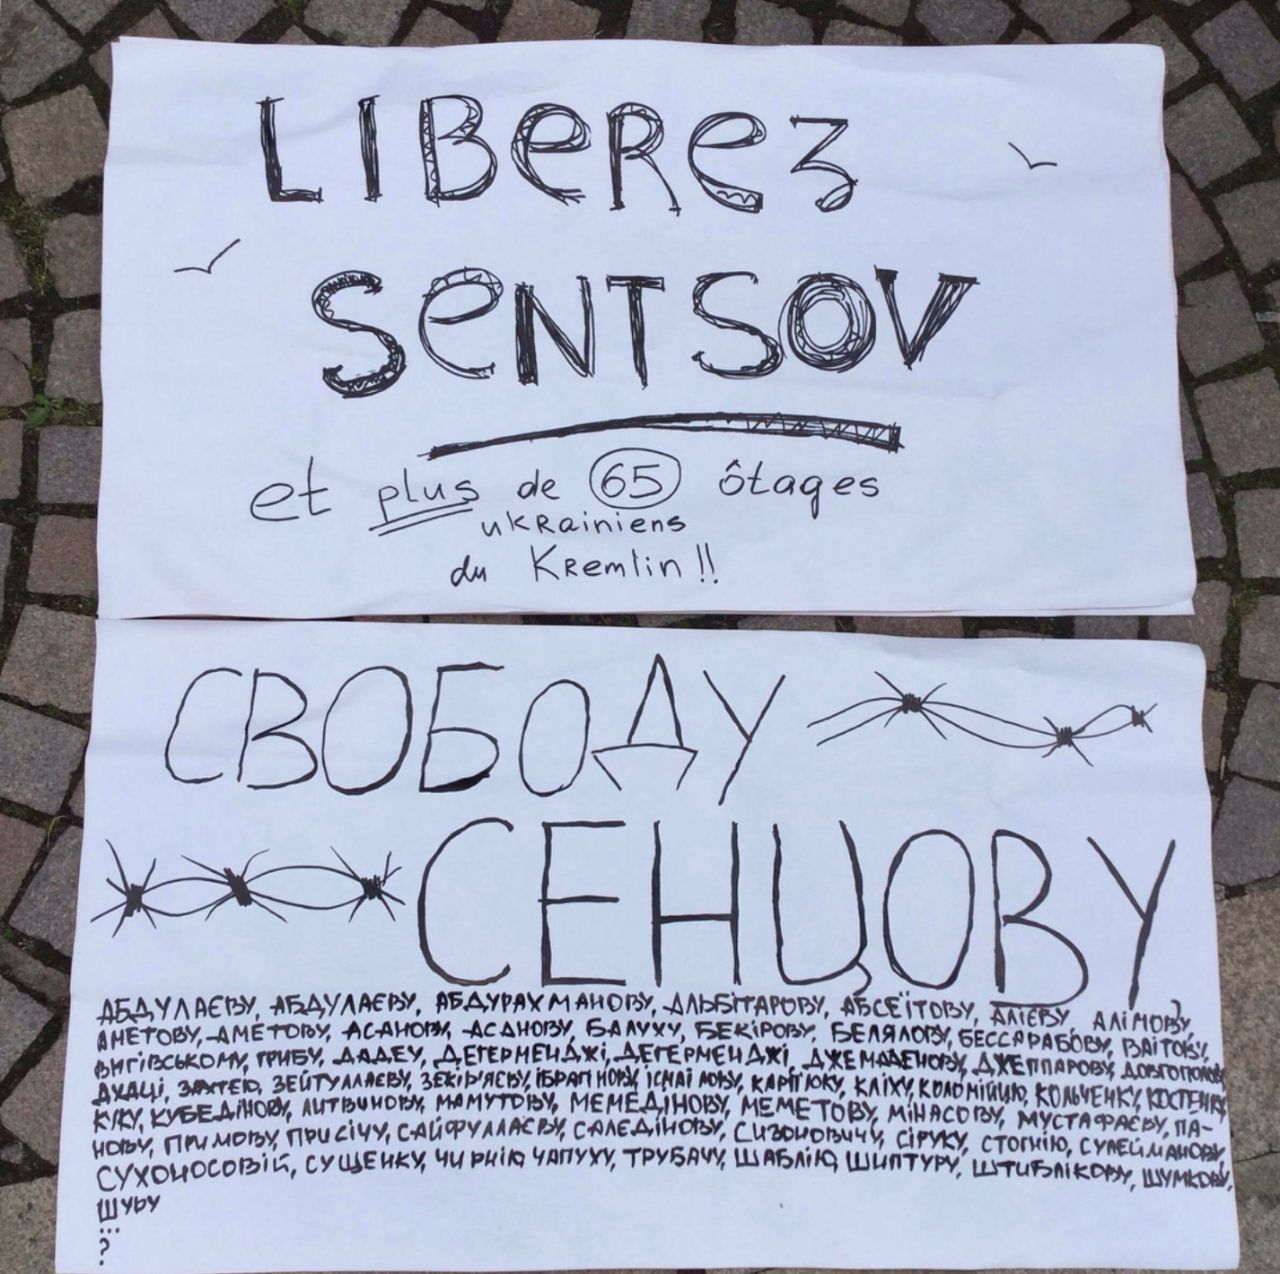 LIBEREZ
SENTSOV
et plus de 65 ôtages
ukRainiens
du KRemlin!!
СВОБОДУ
СЕНЦОВУ
АБДУЛАЄВУ, АБДУЛАЄВУ, АБДУРАХМАНОВУ, АЛЬБІТАРОВУ, АБСЕЇТОВУ, АЛІЄВУ, АЛІМОВУ,
АМЕТОВУ, АМЕТОВУ, АСАНОВУ, АСАНОВУ, БАЛУХУ, БЕКІРОВУ, БЕЛЯЛОВУ, БЕССАРАБОВУ, ВАІТОВУ,
ВИГІВСЬКОМУ, ГРИБУ, ДАДЕУ, ДЕГЕРМЕНДЖІ, ДЕГЕРМЕНДЖІ, ДЖЕМАДЕНОВУ, ДЖЕППАРОВУ, ДОВГОПОЛОВУ
ДУДАЦІ, ЗАХТЕЮ, ЗЕЙТУЛЛАЄВУ, ЗЕКІР'ЯЄВУ, ІБРАГІМОВУ, ІСМАІЛОВУ, КАРП'ЮКУ, КЛІХУ, КОЛОМІЙЦЮ, КОЛЬЧЕНКУ, КОСТЕНКУ
КУКУ, КУБЕДІНОВУ, ЛИТВИНОВУ, МАМУТОВУ, МЕМЕДІНОВУ, МЕМЕТОВУ, МІНАСОВУ, МУСТАФАЄВУ, ПА-
НОВУ, ПРИМОВУ, ПРИСІЧУ, САЙФУЛЛАЄВУ, САЛЕДІНОВУ, СИЗОНОВИЧУ, СІРУКУ, СТОГНІЮ, СУЛЕЙМАНОВУ,
СУХОНОСОВІЙ, СУЩЕНКУ, ЧИРНІЮ, ЧАПУХУ, ТРУБАЧУ, ШАБЛІЮ, ШИПТУРУ, ШТИБЛІКОВУ, ШУМКОВУ,
ШУВУ
...
?